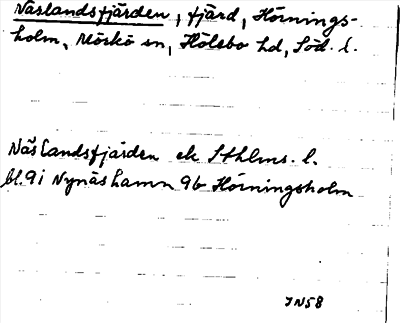 Näslandsfjärden, fjärd, Hörnings-
holm, Mörkö sn, Hölebo hd, Söd. l.
Näslandsfjärden ek Sthlms. l.
bl. 9i Nynäshamn 9b Hörningsholm
IN58